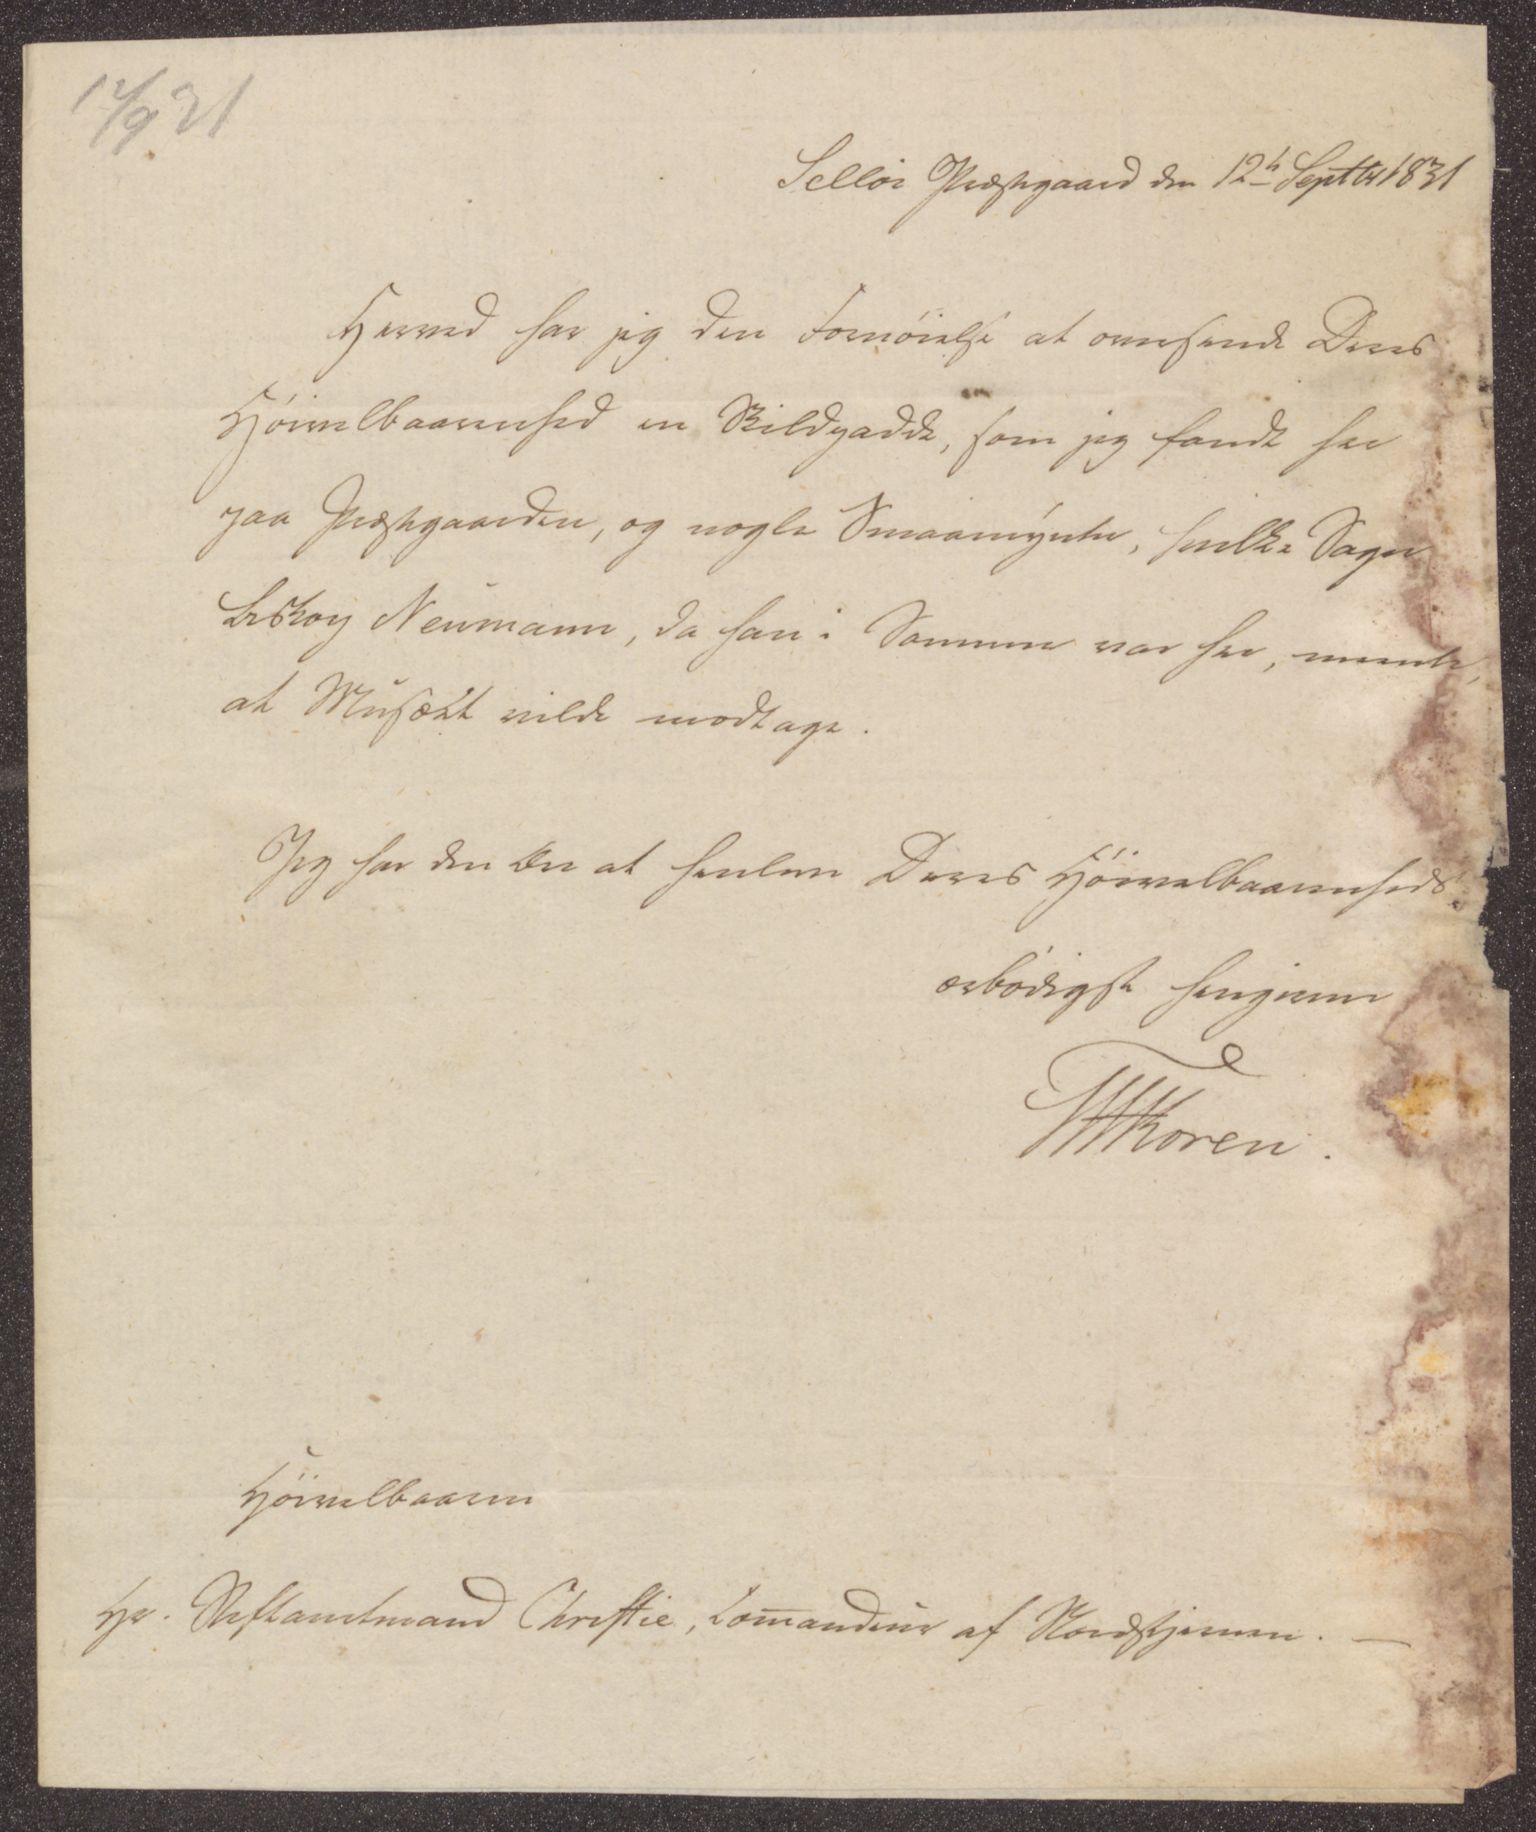 12/9 31
Selløe Præstegaard den 12te Septbr 1831
Herved har jeg den Fornöielse at oversende Deres
Höivelbaarenhed en Skildpadde, som jeg fandt her
paa Præstegaarden, og nogle Smaamynter, hvilke
Biskop Neumann, da han i Sommer var her, meente,
at Musæet vilde modtage.
Jeg har den Ære at henleve Deres Höivelbaarenheds
ærbödigst hengivne
Koren.
Höivelbaarne
Hr. Stiftamtmand Christie, Commandeur af Nordstjernen. —